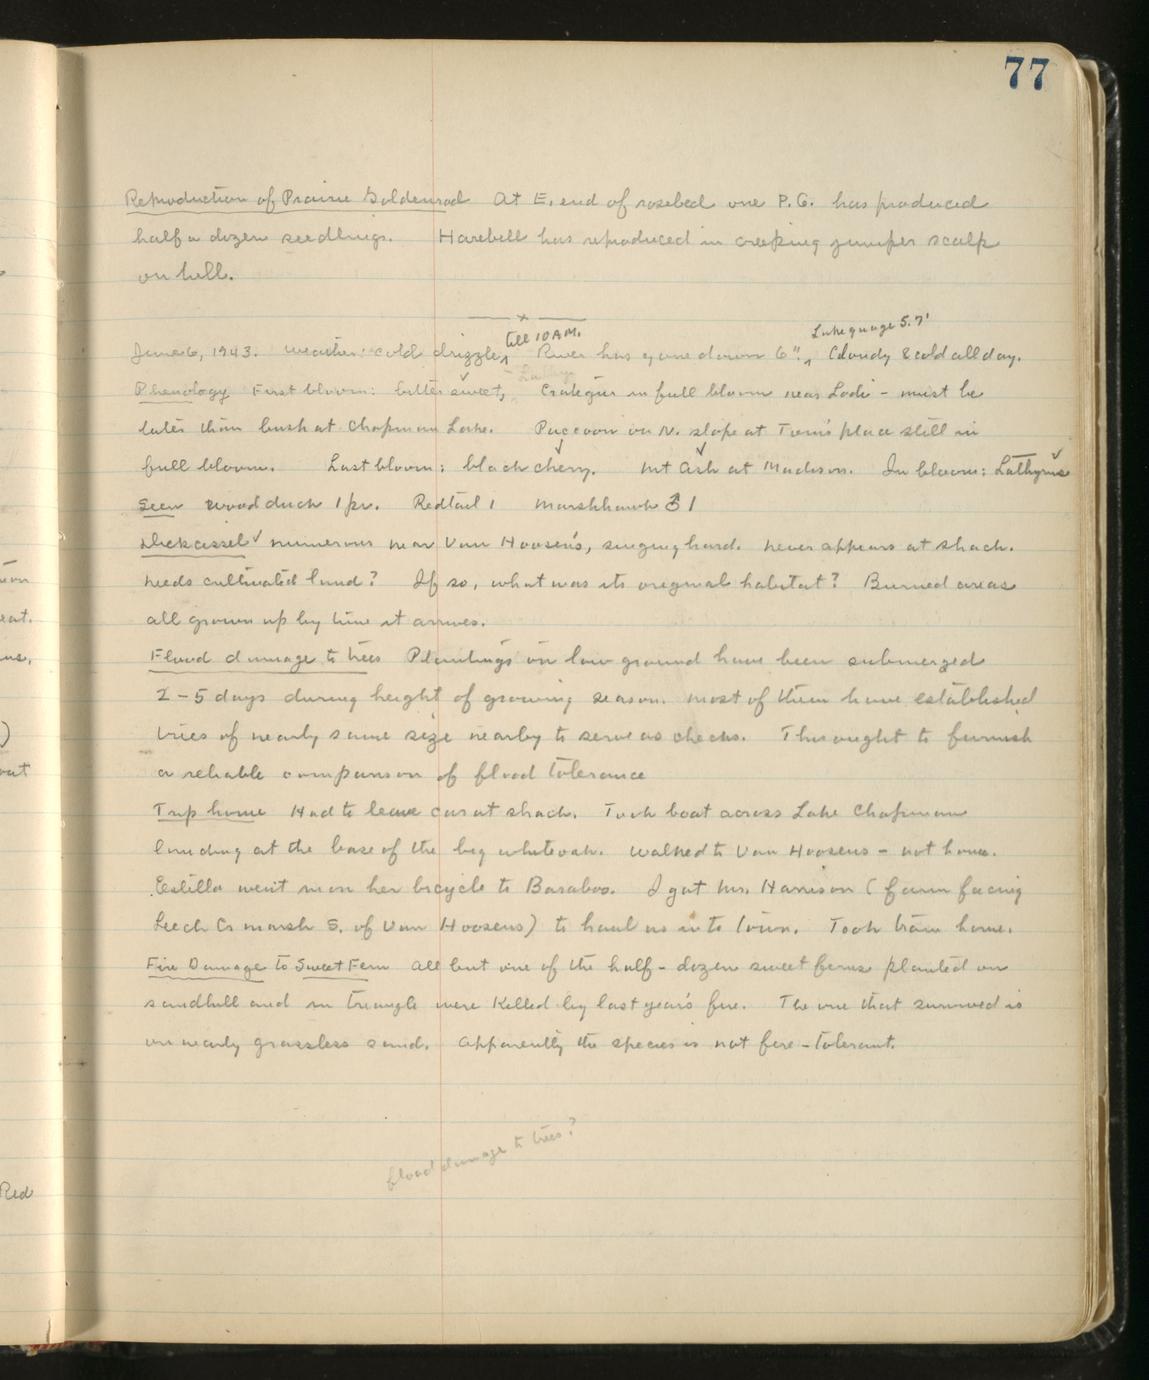 77
Reproduction of Prairie Goldenrod At E. end of rosebed one P.G. has produced
half a dozen seedlings. Harebell has reproduced in creeping juniper scalp
on hill.
till 10 A.M. Lake guage 5.7'
June 6, 1943. Weather: cold drizzle, River has gone down 6". Cloudy & cold all day.
Phenology First bloom: bitter sweet, Crategus in full bloom near Lodi - must be
later than bush at Chapman Lake. Puccoon on N. slope at Tom's place still in
full bloom. Last bloom: black cherry. Mt Ash at Madison. In bloom: Lathyrus
Seen Wood duck 1 pr. Redtail 1 Marshhawk ♂ 1
Dickcissel ✓ numerous near Van Hoosen's, singing hard. Never appears at shack.
Needs cultivated land? If so, what was its original habitat? Burned areas
all grown up by time it arrives.
Flood damage to trees Plantings on low ground have been submerged
2-5 days during height of growing season. Most of them have established
trees of nearly same size nearby to serve as checks. This ought to furnish
a reliable comparison of flood tolerance
Trip home Had to leave car at shack. Took boat across Lake Chapman
landing at the base of the big whiteoak. Walked to Van Hoosens - not home.
Estella went in on her bicycle to Baraboo. I got Mr. Harrison (farm facing
Leech Cr marsh S. of Van Hoosens) to haul us in to town. Took train home.
Fire Damage to Sweet Fern All but one of the half-dozen sweet ferns planted on
sandhill and in triangle were killed by last year's fire. The one that survived is
on nearly grassless sand. Apparently the species is not fire-tolerant.
flood damage to trees?